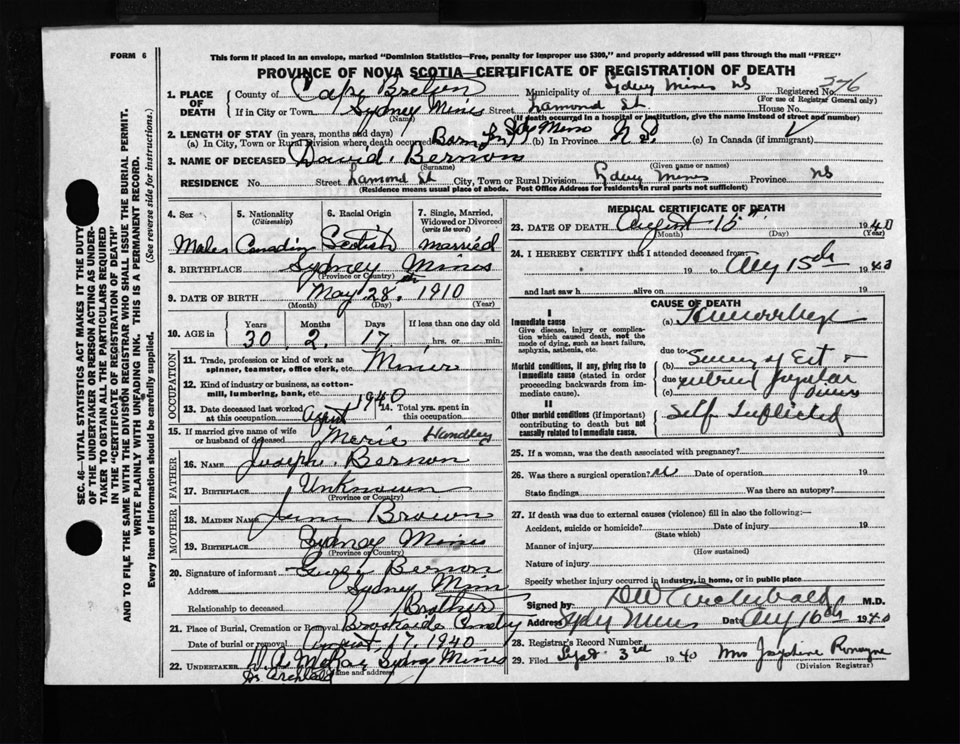 FORM 6
This form if placed in an envelope, marked "Dominion Statistics—Free, penalty for improper use $300," and properly addressed will pass through the mail "FREE"
PROVINCE OF NOVA SCOTIA—CERTIFICATE OF REGISTRATION OF DEATH
1. PLACE OF DEATH
County of Cape Breton Municipality of Sydney Mines NS Registered No. 376
(For use of Registrar General only)
If in City or Town Sydney Mines Street Lamond St House No.
(Name) (If death occurred in a hospital or institution, give the name instead of street and number)
2. LENGTH OF STAY (in years, months and days)
(a) In City, Town or Rural Division where death occurred Born In Sy Mines (b) In Province N S. (c) In Canada (if immigrant)
3. NAME OF DECEASED David. Bernon
(Surname) (Given name or names)
RESIDENCE No. Street Lamond St City, Town or Rural Division Sydney Mines Province NS
(Residence means usual place of abode. Post Office Address for residents in rural parts not sufficient)
4. Sex 5. Nationality (Citizenship) 6. Racial Origin 7. Single, Married, Widowed or Divorced (write the word)
Male Canadian Scotish Married
8. BIRTHPLACE Sydney Mines
(Province or Country)
9. DATE OF BIRTH May 28th 1910
(Month) (Day) (Year)
10. AGE in Years Months Days If less than one day old
30 2 17 hrs. or min.
OCCUPATION
11. Trade, profession or kind of work as spinner, teamster, office clerk, etc. Miner
12. Kind of industry or business, as cotton-mill, lumbering, bank, etc.
13. Date deceased last worked at this occupation August 1940 14. Total yrs. spent in this occupation
15. If married give name of wife or husband of deceased Merie Handley
FATHER
16. NAME Joseph. Bernon
17. BIRTHPLACE Unknown
(Province or Country)
MOTHER
18. MAIDEN NAME Brown
19. BIRTHPLACE Sydney Mines
(Province or Country)
20. Signature of informant Bernon
Address Sydney Mines
Relationship to deceased Brother
21. Place of Burial, Cremation or Removal Brookside
Date of burial or removal August 17, 1940
22. UNDERTAKER Sydney Mines
(Name and address)
MEDICAL CERTIFICATE OF DEATH
23. DATE OF DEATH August 15th 1940
(Month) (Day) (Year)
24. I HEREBY CERTIFY that I attended deceased from
19 to Aug 15th 1940
and last saw h alive on 19
CAUSE OF DEATH
I
Immediate cause
Give disease, injury or complication which caused death, not the mode of dying, such as heart failure, asphyxia, asthenia, etc.
(a) Hemorrhage
due to
Morbid conditions, if any, giving rise to immediate cause (stated in order proceeding backwards from immediate cause).
(b)
due to
(c) Jugular
II
Other morbid conditions (if important) contributing to death but not causally related to immediate cause.
Self Inflicted
25. If a woman, was the death associated with pregnancy?
26. Was there a surgical operation? Date of operation 19
State findings Was there an autopsy?
27. If death was due to external causes (violence) fill in also the following:—
Accident, suicide or homicide? Date of injury 19
(State which)
Manner of injury
(How sustained)
Nature of injury
Specify whether injury occurred in industry, in home, or in public place
Signed by DW Archibald M.D.
Address Sydney Mines Date Aug 16th 1940
28. Registrar's Record Number
29. Filed Sept 3rd 1940 Mrs Josephine Romayne
(Division Registrar)
SEC. 46—VITAL STATISTICS ACT MAKES IT THE DUTY OF THE UNDERTAKER OR PERSON ACTING AS UNDERTAKER TO OBTAIN ALL THE PARTICULARS REQUIRED IN THE "CERTIFICATE OF REGISTRATION OF DEATH" AND TO FILE THE SAME WITH THE DIVISION REGISTRAR WHO SHALL ISSUE THE BURIAL PERMIT.
WRITE PLAINLY WITH UNFADING INK. THIS IS A PERMANENT RECORD.
Every item of information should be carefully supplied. (See reverse side for instructions.)